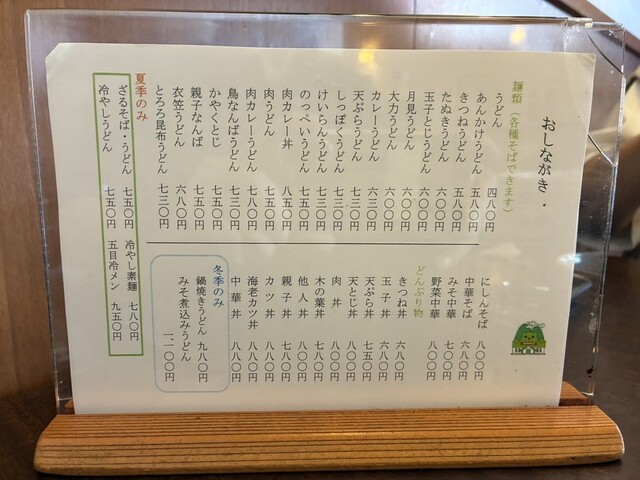 おしながき.
麺類 (各種そばできます)
うどん 四八〇円
あんかけうどん 五八〇円
きつねうどん 五八〇円
たぬきうどん 六〇〇円
玉子とじうどん 六〇〇円
月見うどん 六〇〇円
大力うどん 六〇〇円
カレーうどん 六三〇円
天ぷらうどん 七三〇円
しっぽくうどん 七三〇円
けいらんうどん 七三〇円
のっぺいうどん 七五〇円
肉カレー丼 八五〇円
肉うどん 七五〇円
肉カレーうどん 七八〇円
鳥なんばうどん 七三〇円
かやくとじ 七五〇円
親子なんば 七五〇円
衣笠うどん 六八〇円
とろろ昆布うどん 七三〇円
にしんそば 八〇〇円
中華そば 六八〇円
みそ中華 七〇〇円
野菜中華 八〇〇円
どんぶり物
きつね丼 六八〇円
玉子丼 六八〇円
天ぷら丼 七五〇円
天とじ丼 八〇〇円
肉丼 八〇〇円
木の葉丼 七八〇円
他人丼 八八〇円
親子丼 八八〇円
カツ丼 八八〇円
海老カツ丼 八八〇円
中華丼 八八〇円
冬季のみ
鍋焼きうどん 九八〇円
みそ煮込みうどん 一、一〇〇円
夏季のみ
ざるそば・うどん 七五〇円 冷やし素麺 七八〇円
冷やしうどん 七五〇円 五目冷メン 九五〇円